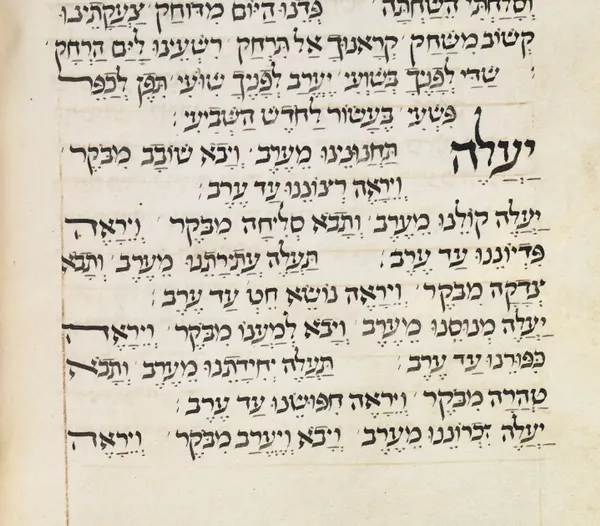 וסלחתי השחתה פדנו היום מדוחק צעקתינו
קשוב משחק קראנוך אל תרחק רשעינו לים הרחק
שדי לפניך בשועי יערב לפניך שועי תפן לכפר
פשעי בעשור לחדש השביעי׃
יַעֲלֶה תַּחֲנוּנֵינוּ מֵעֶרֶב וְיָבֹא שׁוֹבָב מִבֹּקֶר
וְיֵרָאֶה רִצּוֹנֵנוּ עַד עָרֶב׃
יַעֲלֶה קוֹלֵנוּ מֵעֶרֶב וְתָבֹא סְלִיחָה מִבֹּקֶר וְיֵרָאֶה
פִּדְיוֹנֵנוּ עַד עָרֶב׃ תַּעֲלֶה עֲתִירָתֵנוּ מֵעֶרֶב וְתָבֹא
צְדָקָה מִבֹּקֶר וְיֵרָאֶה נוֹשֵׂא חֵטְ עַד עָרֶב׃
יַעֲלֶה מְנוּסֵנוּ מֵעֶרֶב וְיָבֹא לְמַעֲנוֹ מִבֹּקֶר וְיֵרָאֶה
כִּפּוּרֵנוּ עַד עָרֶב׃ תַּעֲלֶה יְחִידָתֵנוּ מֵעֶרֶב וְתָבֹא
טָהֳרָה מִבֹּקֶר וְיֵרָאֶה חִפּוּשֵׂנוּ עַד עָרֶב׃
יַעֲלֶה זִכְרוֹנֵנוּ מֵעֶרֶב וְיָבֹא וְיֶעֱרַב מִבֹּקֶר וְיֵרָאֶה